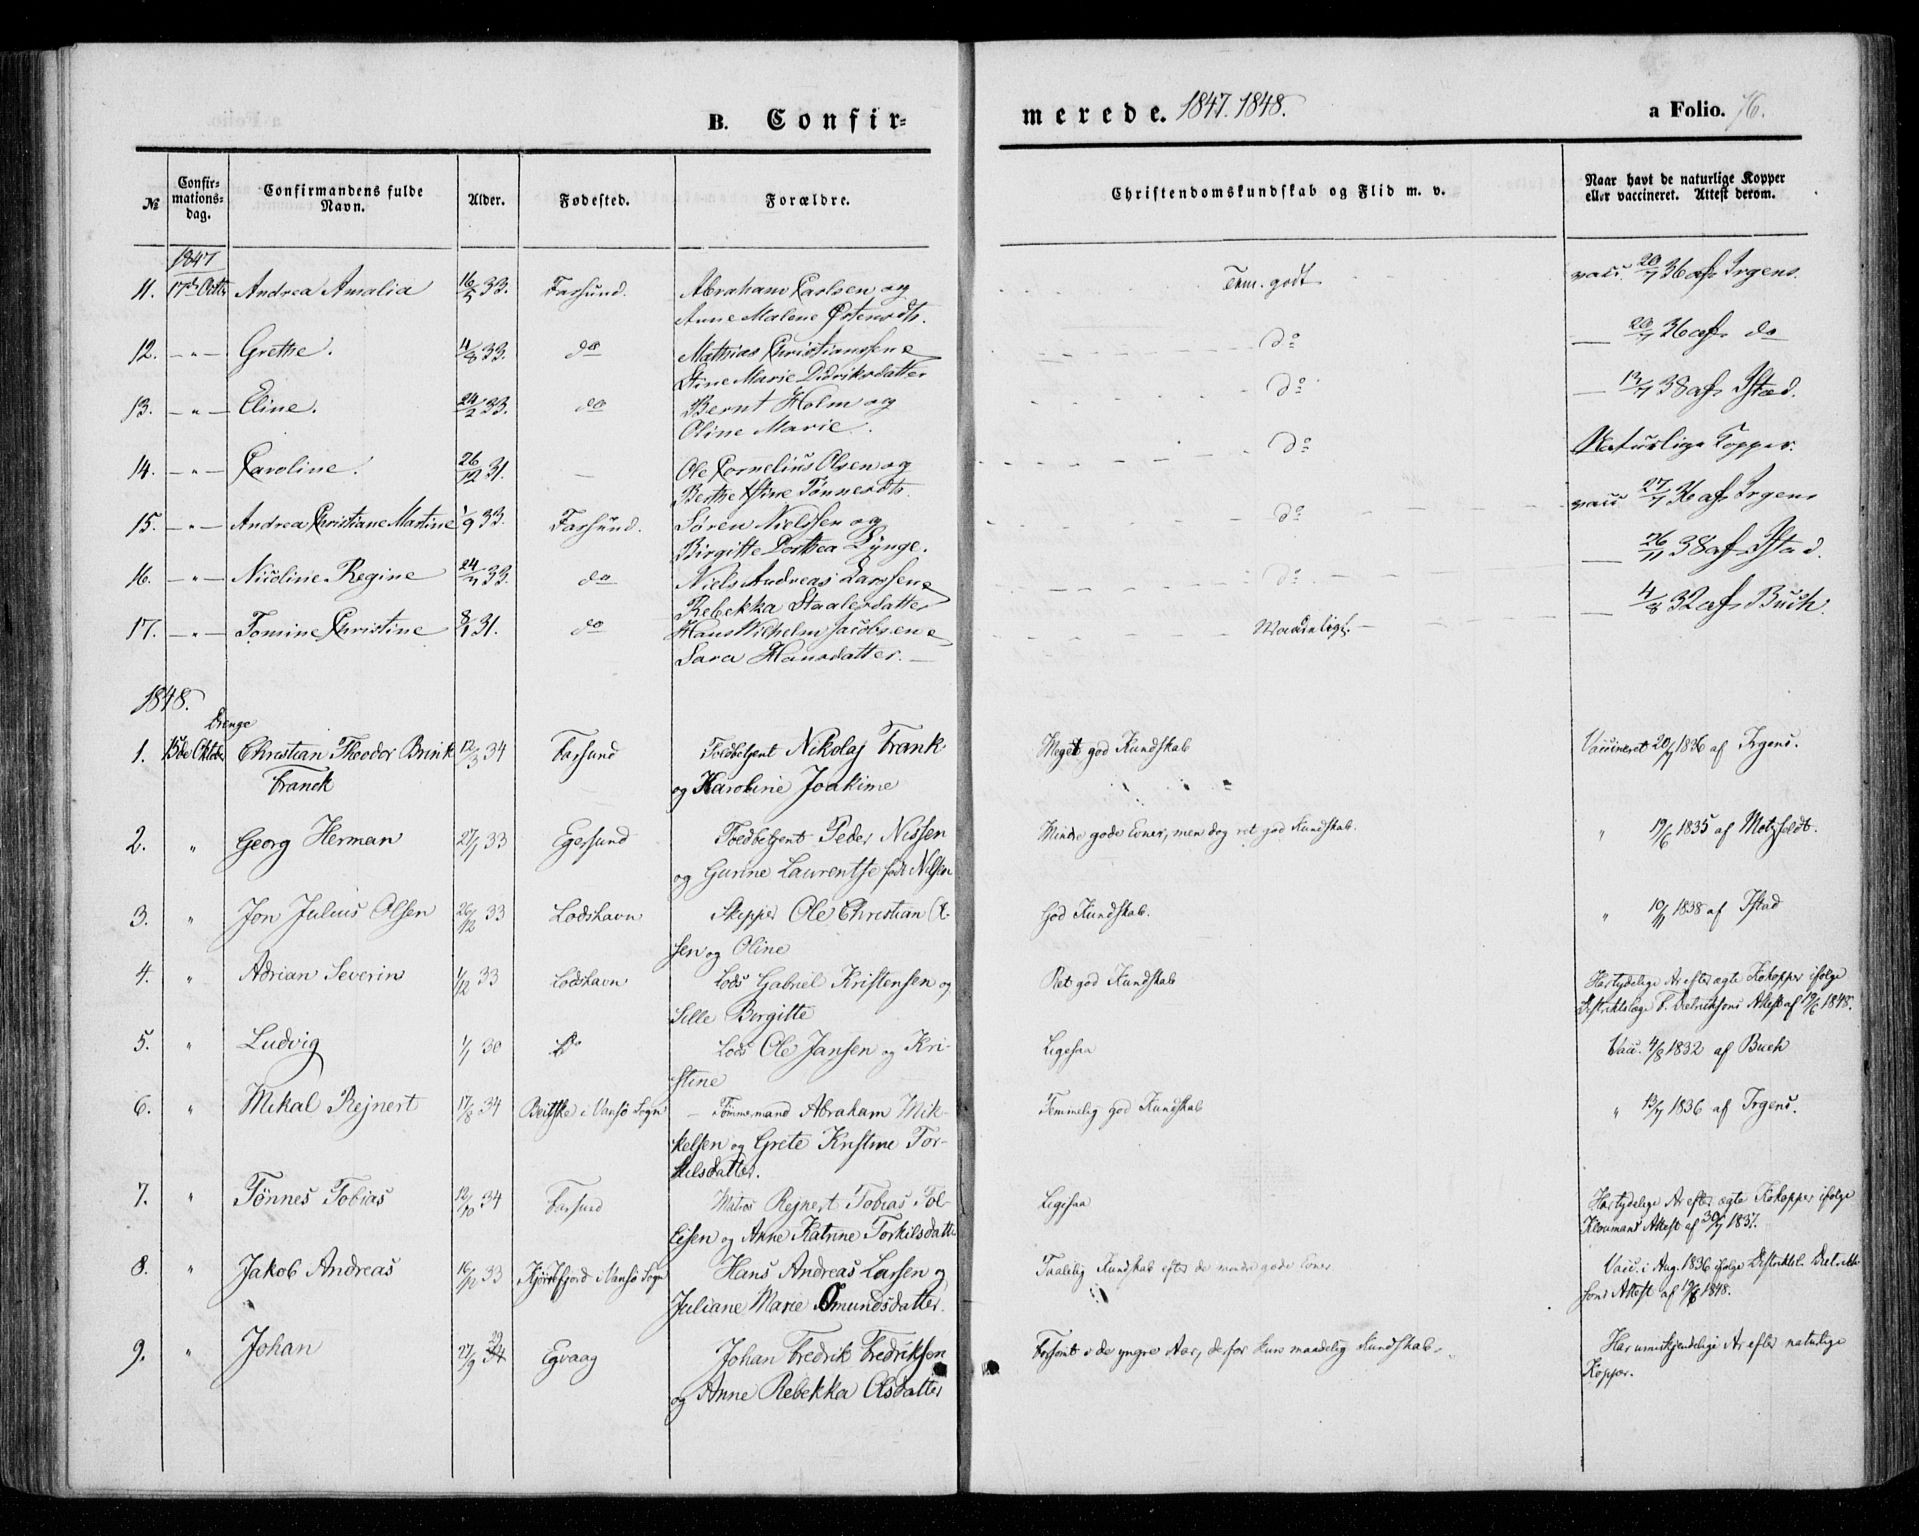 B. Confirmerede. 1847. 1848. a Folio. 76.
№ Confirmationsdag. Confirmandens fulde Navn. Alder. Fødested. Forældre. Christendomskundskab og Flid m. v. Naar havt de naturlige Kopper eller vaccineret. Attest derom.
1847
11. 17de Octbr Andrea Amalia 16/5 33. Farsund. Abraham Carlsen og Tem. godt vacc. 20/7 36 af Irgens.
Anne Malene Østensdtr.
12. — " — Grethe. 4/8 33. do Mathias Christianssen do — 20/7 36 af do
Stine Marie Didriksdatter
13. — " — Eline. 24/2 33. do Bernt Holm og do — 13/7 38 af Istad.
Oline Marie.
14. — " — Caroline. 26/12 31. — Ole Cornelius Olsen og do Naturlige Kopper.
Berthe Stine Tønnesdtr.
15. — " — Andrea Christiane Martine 1/9 33. Farsund. Søren Nielssen og do vacc. 27/7 36 af Irgens
Birgitte Dorthea Lynge.
16. — " — Nicoline Regine 24/7 33. do Niels Andreas Larssen do — 26/11 38 af Istad.
Rebekka Staalesdatter
17. — " — Tomine Christine 8/1 31. do Hans Wilhelm Jacobsen Maadeligt. — 4/8 32 af Buch.
Sara Hansdatter. —
1848.
Drenge
1. 15de Oktober Christian Theodor Brink 12/3 34 Farsund Toldbetjent Nikolaj Frank Meget god Kundskab Vaccineret 20/7 1836 af Irgens.
Franck og Karoline Joakime
2. " Georg Herman 27/1 33 Egersund Toldbetjent Peder Nissen Mindre gode Evner, men dog ret god Kundskab. " 19/6 1835 af Motzfeldt.
og Gurine Laurentse født Nilsen
3. " Jon Julius Olsen 26/12 33 Lodshavn Skipper Ole Christian Ol- God Kundskab. " 10/11 1838 af Istad
sen og Oline
4. " Adrian Severin 1/12 33 Lodshavn Lods Gabriel Kristensen og Ret god Kundskab Har tydelige Ar efter ægte Kokopper ifølge
Sille Birgitte Distriktslæge Dietriksons Attest af 19/6 1848.
5. " Ludvig 1/1 30 Do Lods Ole Jansen og Kri- Ligesaa Vacc. 4/8 1832 af Buch
stine
6. " Mikal Rejnert 17/8 34 Bertske i Vansø Sogn — Tømmermand Abraham Mik- Temmelig god Kundskab " 13/7 1836 af Irgens.
kelsen og Grete Kristine Tor-
kilsdatter.
7. " Tønnes Tobias 12/10 34 Farsund Matros Rejnert Tobias Tol- Ligesaa Har tydelige Ar efter ægte Kokopper ifølge
lisen og Anne Katrine Torkilsdatter Kloumans Attest af 30/7 1837.
8. " Jakob Andreas 16/12 33 Kjørrefjord i Vansø Sogn Hans Andreas Larsen og Taalelig Kundskab efter de mindre gode Evner Vacc. i Aug. 1836 ifølge Distriktsl. Dietrik-
Juliane Marie Omundsdatter. sons Attest af 19/6 1848.
9. " Johan 27/9 29 34 Egvaag Johan Fredrik Fredriksen Forsømt i de yngre Aar, derfor kun maadelig Kundskab. Har umiskjendelige Ar efter naturlige
og Anne Rebekka Olsdatter Kopper.